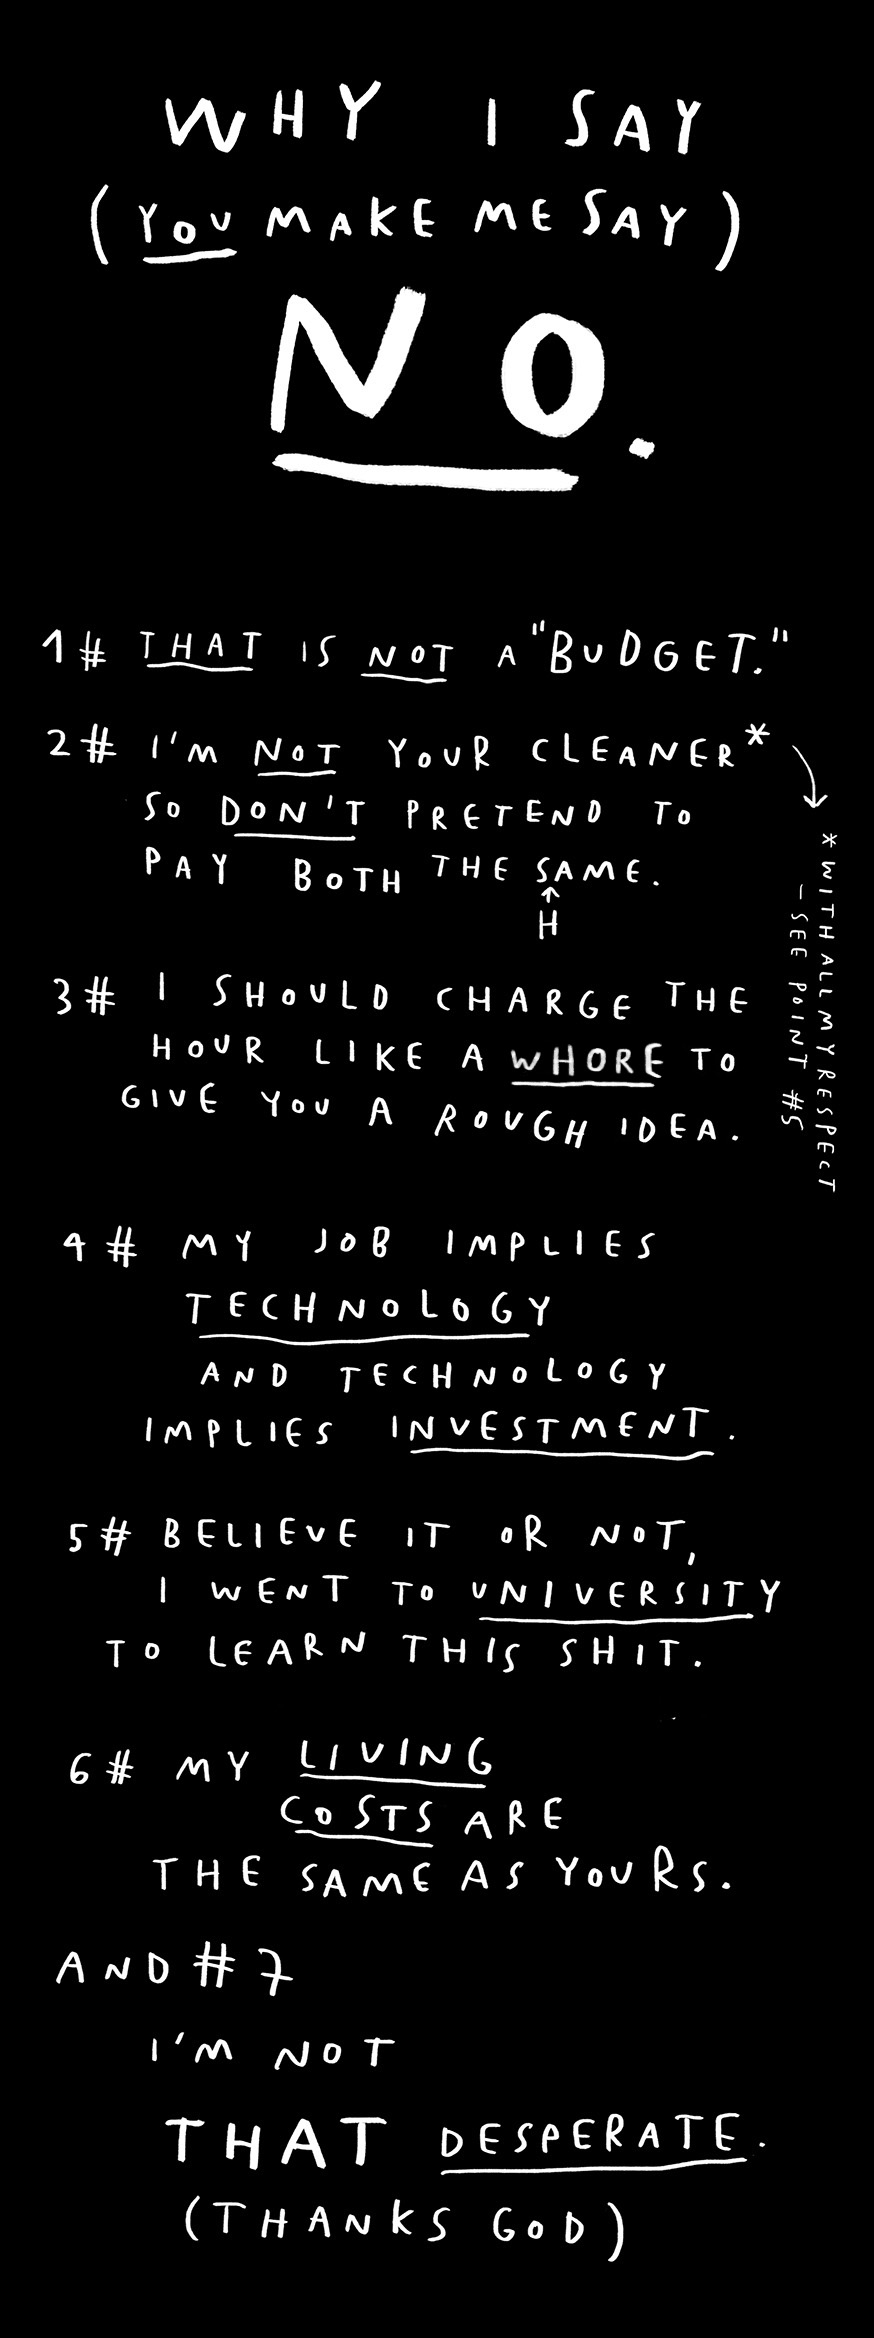 WHY I SAY
(YOU MAKE ME SAY)
NO.
1# THAT IS NOT A "BUDGET."
2# I'M NOT YOUR CLEANER*
SO DON'T PRETEND TO
PAY BOTH THE SAME.
↑
H
* WITH ALL MY RESPECT
– SEE POINT #5
3# I SHOULD CHARGE THE
HOUR LIKE A WHORE TO
GIVE YOU A ROUGH IDEA.
4# MY JOB IMPLIES
TECHNOLOGY
AND TECHNOLOGY
IMPLIES INVESTMENT.
5# BELIEVE IT OR NOT,
I WENT TO UNIVERSITY
TO LEARN THIS SHIT.
6# MY LIVING
COSTS ARE
THE SAME AS YOURS.
AND #7
I'M NOT
THAT DESPERATE.
(THANKS GOD)